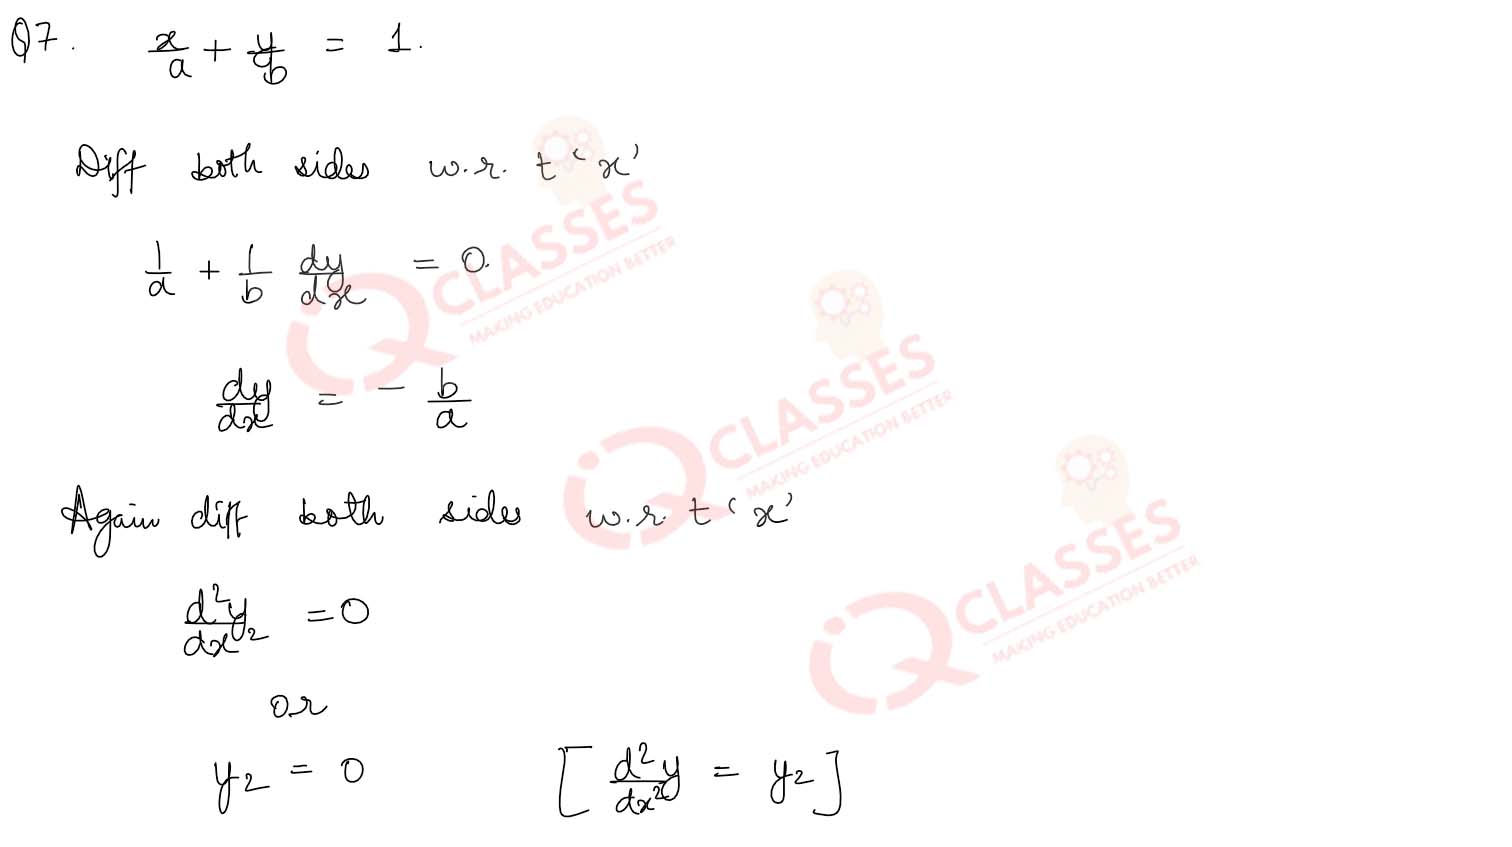 Q7. x/a + y/b = 1.
Diff both sides w.r.t 'x'
1/a + 1/b dy/dx = 0.
dy/dx = - b/a
Again diff both sides w.r.t 'x'
d²y/dx² = 0
or
y₂ = 0 [d²y/dx² = y₂]
iQ CLASSES
MAKING EDUCATION BETTER
iQ CLASSES
MAKING EDUCATION BETTER
iQ CLASSES
MAKING EDUCATION BETTER